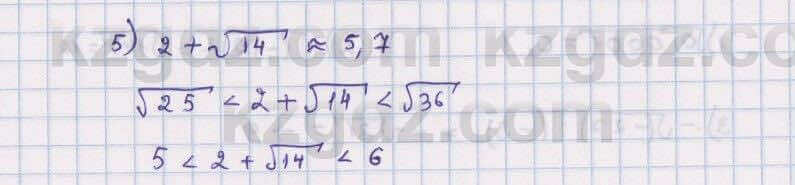 5) 2 + √14 ≈ 5,7
√25 < 2 + √14 < √36
5 < 2 + √14 < 6
kzgdz.com kzgdz.com
kzgdz.com